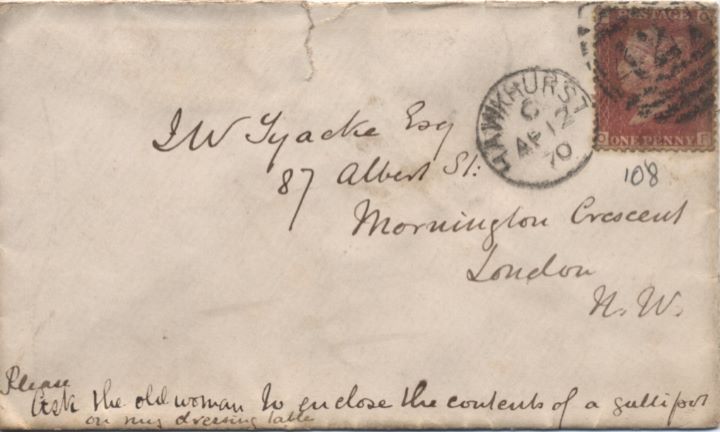 POSTAGE
ONE PENNY
HAWKHURST
C 2
AP 12
70
108
J W Tyacke Esq
87 Albert St:
Mornington Crescent
London
N.W.
Please
Ask the old woman to enclose the contents of a gallipot
on my dressing table